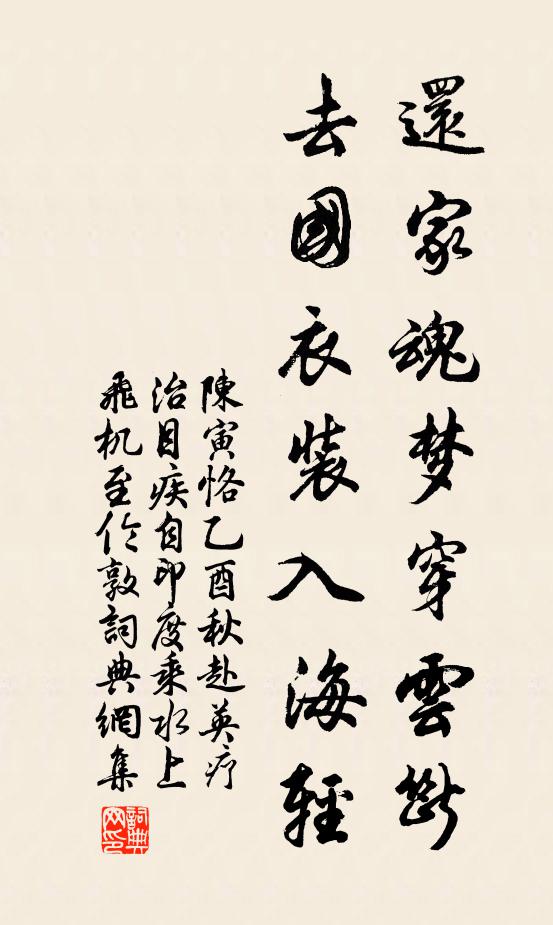 還家魂梦穿雲斷
去國衣裝入海輕
陳寅恪乙酉秋赴英疗
治目疾自印度乘水上
飛机至伦敦詞典網集
詞典
网印